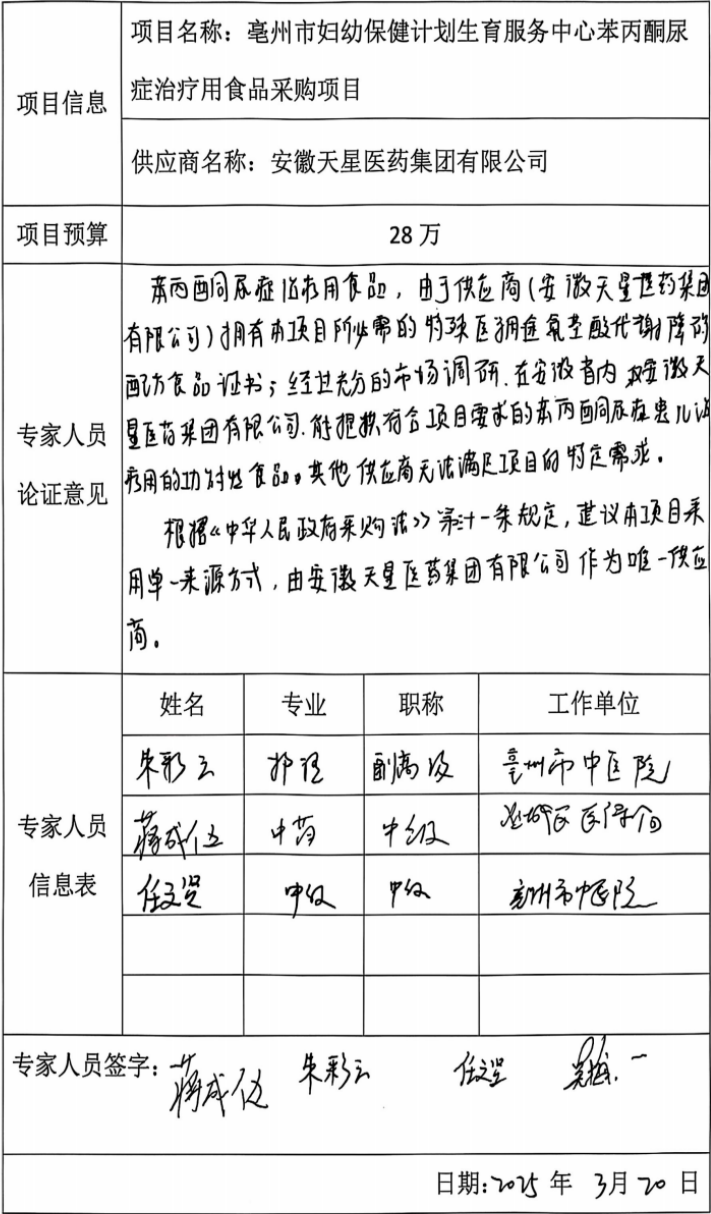 项目信息
项目名称：亳州市妇幼保健计划生育服务中心苯丙酮尿
症治疗用食品采购项目
供应商名称：安徽天星医药集团有限公司
项目预算
28万
专家人员
论证意见
苯丙酮尿症治疗用食品，由于供应商(安徽天星医药集团
有限公司)拥有本项目所必需的特殊医用途氨基酸代谢障碍
配方食品证书；经过充分的市场调研.在安徽省内 安徽天
星医药集团有限公司.能提供符合项目要求的苯丙酮尿症患儿治
疗用的功效性食品。其他供应商无法满足项目的特定需求。
根据《中华人民政府采购法》第三十一条规定，建议本项目采
用单一来源方式，由安徽天星医药集团有限公司作为唯一供应
商。
专家人员
信息表
姓名 专业 职称 工作单位
朱彩云 护理 副高级 亳州市中医院
蒋成伍 中药 中级 谯城区医保局
任文 中级 中级 亳州市中医院
专家人员签字： 蒋成伍 朱彩云 任文
日期:2025年 3月20日